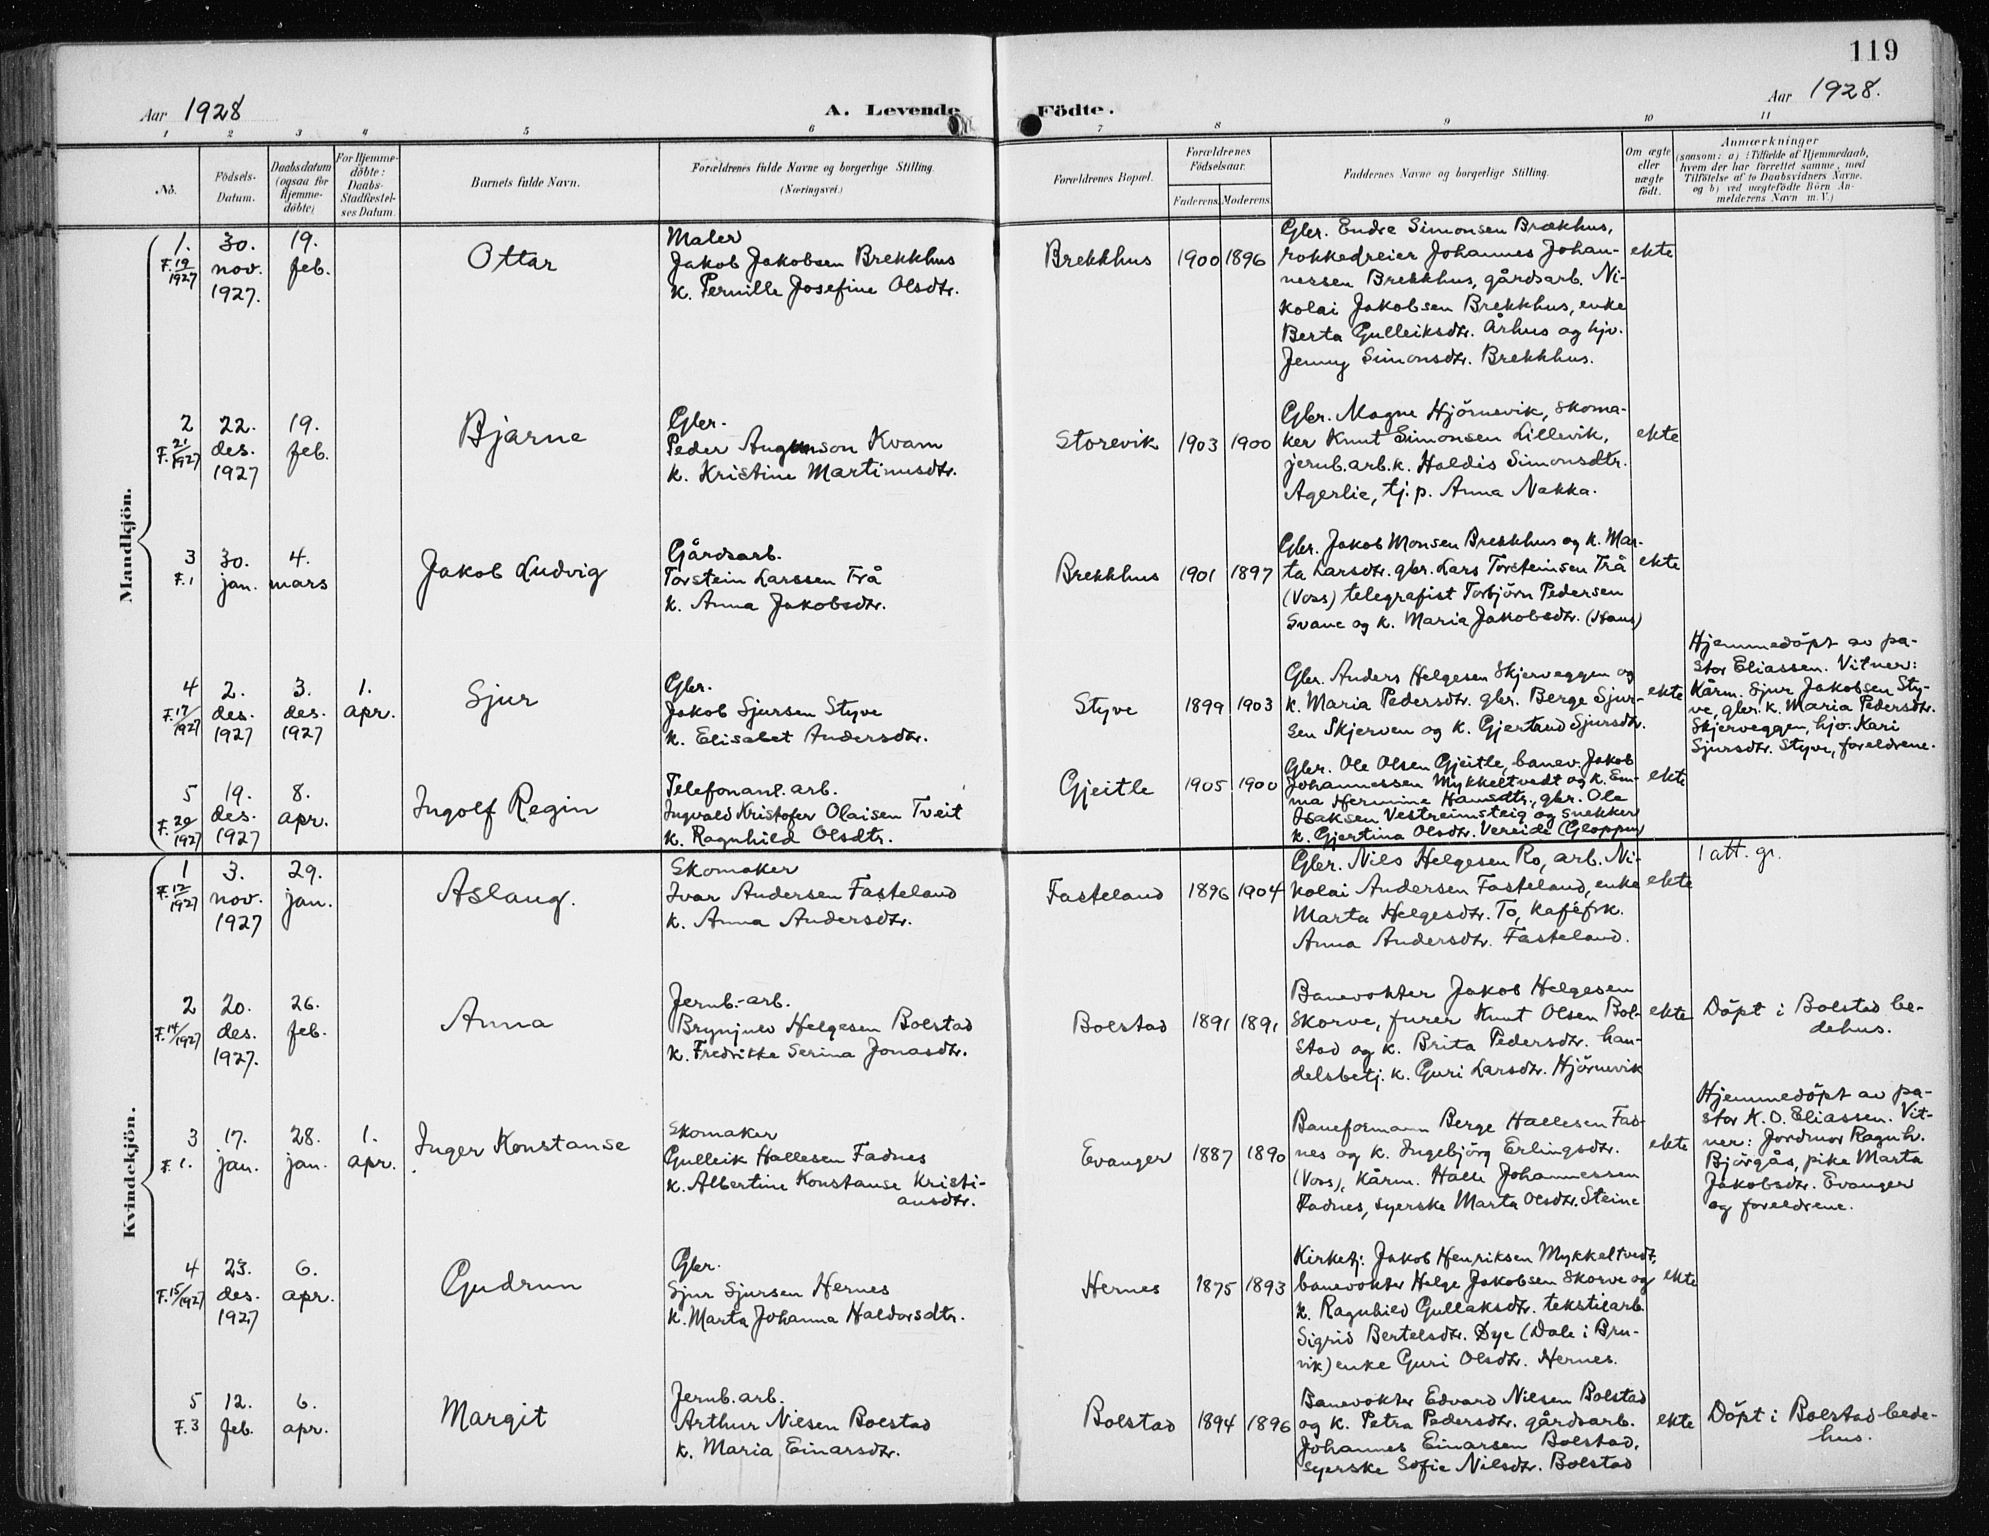 119
Aar 1928
A. Levende Födte.
Aar 1928.
1 2 3 4 5 6 7 8 9 10 11
No.
Födsels-
Datum.
Daabsdatum
(ogsaa for
Hjemme-
döbte)
For Hjemme-
döbte:
Daabs-
Stadfæstel-
ses Datum.
Barnets fulde Navn.
Forældrenes fulde Navne og borgerlige Stilling.
(Næringsvei.)
Forældrenes Bopæl.
Forældrenes
Födselsaar.
Faderens. Moderens.
Faddernes Navne og borgerlige Stilling.
Om ægte
eller
uægte
födt.
Anmærkninger
(saasom: a) i Tilfælde af Hjemmedaab,
hvem der har forrettet samme, med
Tilföielse af to Daabsvidners Navne.
og b) ved uægtefödte Börn An-
melderens Navn m. V.)
Mandkjön.
1.
F. 19/1927
30.
nov.
1927.
19.
feb.
Ottar
Maler
Jakob Jakobsen Brekkhus
k. Pernille Josefine Olsdtr.
Brekkhus
1900
1896
Gbr. Endre Simonsen Brækhus,
rokkedreier Johannes Johan-
nessen Brekkhus, gårdsarb. Ni-
kolai Jakobsen Brekkhus, enke
Berta Gulleiksdtr. Århus og hjv.
Jenny Simonsdtr. Brekkhus.
ekte
2
F. 21/1927
22.
des.
1927
19.
feb.
Bjarne
Gbr.
Peder Kvam
k. Kristine Martinusdtr.
Storevik
1903
1900
Gbr. Magne Hjörnevik, skoma-
ker Knut Simonsen Lillevik,
jernb.arb.k. Haldis Simonsdtr.
Agerlie, tj.p. Anna Nakka.
ekte
3
F. 1
30.
jan.
4.
mars
Jakob Ludvig
Gårdsarb.
Torstein Larssen Trå
k. Anna Jakobsdtr.
Brekkhus
1901
1897
Gbr. Jakob Monsen Brekkhus og k. Mar-
ta Larsdtr. gbr. Lars Torsteinsen Trå
(Voss) telegrafist Torbjörn Pedersen
Svane og k. Maria Jakobsdtr. (Haus)
ekte
4
F. 17/1927
2.
des.
1927
3.
des.
1927
1.
apr.
Sjur
Gbr.
Jakob Sjursen Styve
k. Elisabet Andersdtr.
Styve
1899
1903
Gbr. Anders Helgesen Skjerveggen og
k. Maria Pedersdtr. gbr. Berge Sjur-
sen Skjerven og k. Gjertrud Sjursdtr.
ekte
Hjemmedöpt av pa-
stor Eliassen. Vitner:
Kårm. Sjur Jakobsen Sty-
ve, gbr. k. Maria Pedersdtr.
Skjerveggen, hjv. Kari
Sjursdtr. Styve, foreldrene.
5
F. 20/1927
19.
des.
1927
8.
apr.
Ingolf Regin
Telefonanl. arb.
Ingvald Kristofer Olaisen Tveit
k. Ragnhild Olsdtr.
Gjeitle
1905
1900
Gbr. Ole Olsen Gjeitle, banev. Jakob
Johannessen Mykkeltvedt og k. Em-
ma Hermine Hansdtr., gbr. Ole
Isaksen Vestreimsteig og snekker
k. Gjertina Olsdtr. Vereide (Gloppen)
ekte
Kvindekjön.
1
F. 12/1927
3.
nov.
1927
29.
jan.
Aslaug.
Skomaker
Ivar Andersen Fasteland
k. Anna Andersdtr.
Fasteland
1896
1904
Gbr. Nils Helgesen Ro, arb. Ni-
kolai Andersen Fasteland, enke
Marta Helgesdtr. To, kaféfrk.
Anna Andersdtr. Fasteland.
ekte
1 att. gr.
2
F. 14/1927
20.
des.
1927.
26.
feb.
Anna
Jernb.-arb.
Brynjulv Helgesen Bolstad
k. Fredrikke Serina Jonasdtr.
Bolstad
1891
1891
Banevokter Jakob Helgesen
Skorve, furer Knut Olsen Bol-
stad og k. Brita Pedersdtr. han-
delsbetj. k. Guri Larsdtr. Hjörnevik
ekte
Döpt i Bolstad be-
dehus.
3
F. 1.
17.
jan.
28.
jan.
1.
apr.
Inger Konstanse
Skomaker
Gulleik Hallesen Fadnes
k. Albertine Konstanse Kristi-
ansdtr.
Evanger
1887
1890
Baneformann Berge Hallesen Fad-
nes og k. Ingebjörg Erlingsdtr.
(Voss), Kårm. Halle Johannessen
Fadnes, syerske Marta Olsdtr. Steine
ekte
Hjemmedöpt av pa-
stor K. O. Eliassen. Vit-
ner: Jordmor Ragnh.
Björgås, pike Marta
Jakobsdtr. Evanger
og foreldrene.
4
F. 15/1927
23.
des.
1927
6.
apr.
Gudrun
Gbr.
Sjur Sjursen Hernes
k. Marta Johanna Haldorsdtr.
Hernes
1875
1893
Kirketj: Jakob Henriksen Mykkeltvedt,
banevokter Helge Jakobsen Skorve og
k. Ragnhild Gullaksdtr. tekstilarb.
Sigrid Bertelsdtr. Dye (Dale i Bru-
vik) enke Guri Olsdtr. Hernes.
ekte
5
F. 3
12.
feb.
6.
apr.
Margit
Jernb. arb.
Arthur Nilsen Bolstad
k. Maria Einarsdtr.
Bolstad
1894
1896
Banevokter Edvard Nilsen Bolstad
og k. Petra Pedersdtr. gårdsarb.
Johannes Einarsen Bolstad,
syerske Sofie Nilsdtr. Bolstad
ekte
Döpt i Bolstad bede-
hus.